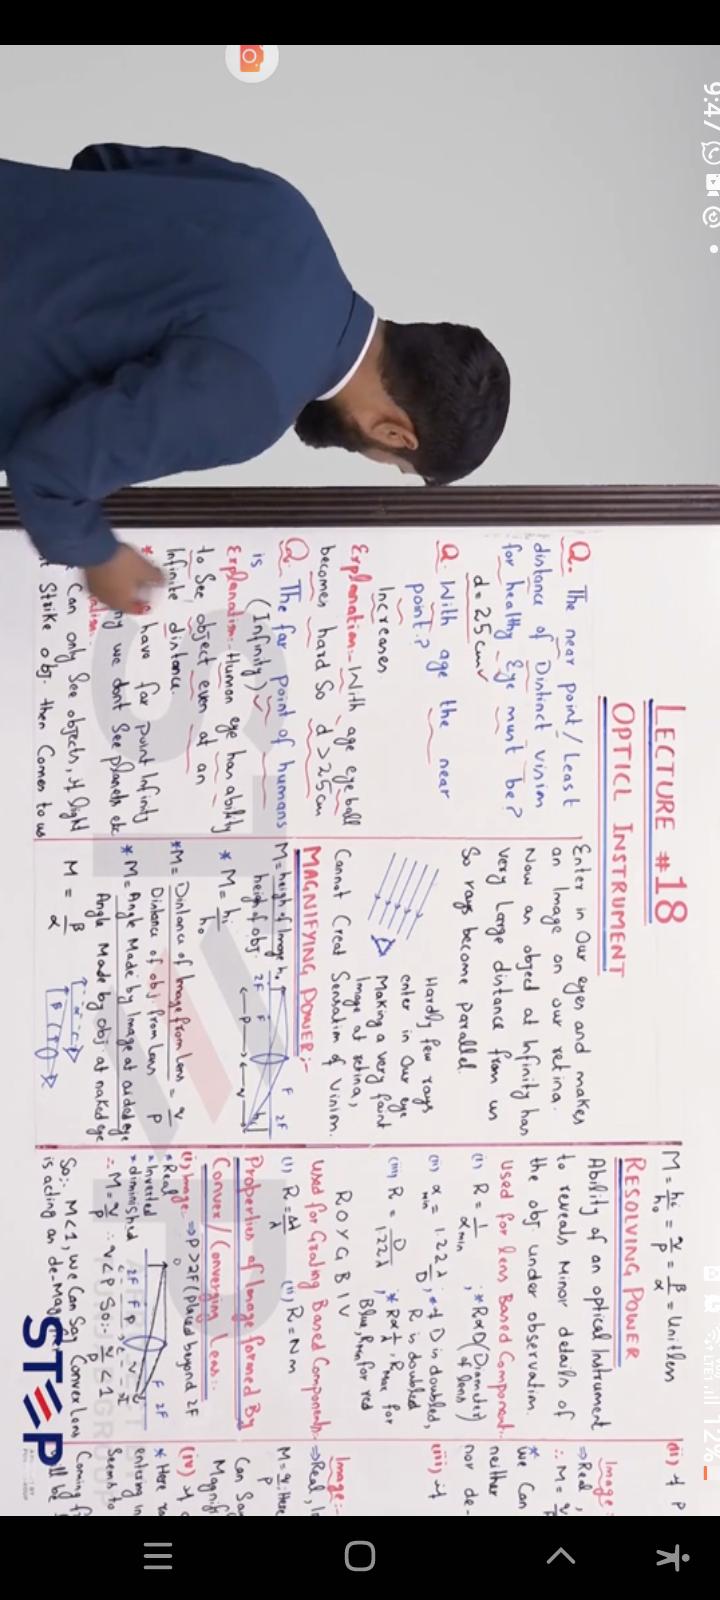 9:47
12%
LECTURE #18
OPTICL INSTRUMENT
Q. The near point/Least
distance of Distinct vision
for healthy Eye must be?
d = 25cm
Q. With age the near
point?
Increases
Explanation:- With age eye ball
becomes hard So d > 25cm
Q. The far point of humans
is (Infinity)
Explanation:- Human eye has ability
to See object even at an
Infinite distance.
have far point Infinity
why we dont See planets etc
Can only See objects, if light
Strike obj. then Comes to us
Enter in Our eyes and makes
an Image on our retina.
Now an object at Infinity has
very Large distance from us
So rays become parallel.
Hardly few rays
enter in Our eye
Making a very faint
Image at retina,
Cannot Creat Sensation of Vision.
MAGNIFYING POWER:-
M = height of Image
height of obj.
* M = hi
ho
2F F F 2F
P
* M = Distance of Image from Lens = q
Distance of obj from Lens P
* M = Angle Made by Image at aided eye
Angle Made by obj at naked eye
M = β
α
M = hi = q = β = Unitless
ho P α
RESOLVING POWER
Ability of an optical Instrument
to reveals Minor details of
the obj under observation.
Used for lens Based Component.
(i) R = 1 ; * R∝D (Diameter)
αmin of lens
(ii) αmin = 1.22 λ ; * if D is doubled,
D R is doubled
(iii) R = D ; * R∝1/λ, Rmax for
1.22λ Blue, Rmin for red
R O Y G B I V
Used for Grating Based Components.
(i) R = λ (ii) R = N m
Properties of Image formed By
Convex/Converging Lens:-
(i) Image:- ⇒ P > 2F (Placed beyond 2F
* Real
* Inverted
* diminished
2F F P F 2F
∴ M = q ∴ q < P So:- q < 1
P P
So:- M < 1, we Can Say Convex Lens
is acting as de-Mag
(ii) if P
Image:
⇒ Real,
∴ M = q
* We Can
neither
nor de-
(iii) if
Image:-
⇒ Real, In
M = q ∴ Here
P
Can Sa
Magnifi
(iv) if
* Here ra
entering in
Seems to
Coming f
will be
STEP